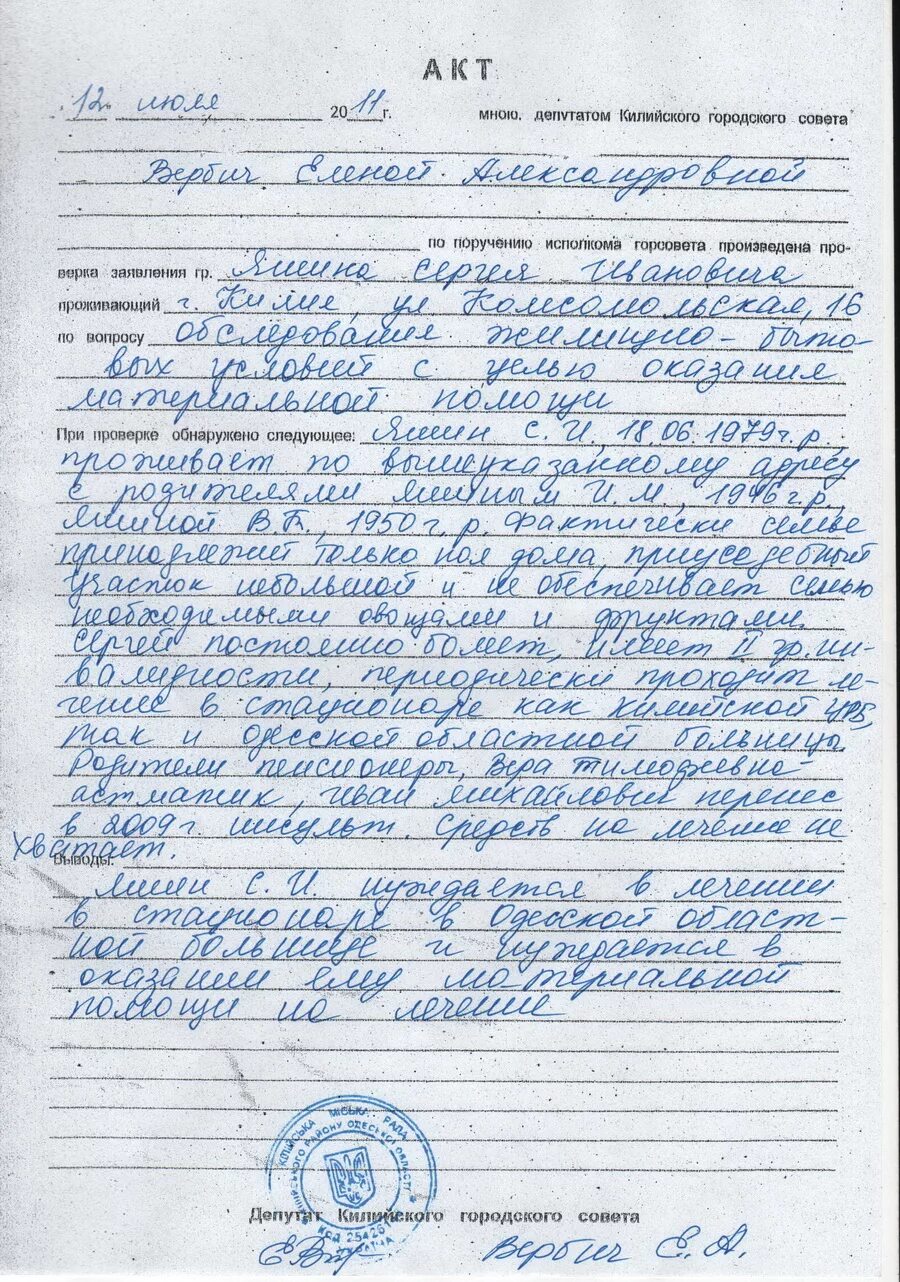 АКТ
12 июля 2011 г. мною, депутатом Килийского городского совета
Вербич Еленой Александровной
по поручению исполкома горсовета произведена про-
верка заявления гр. Яшина Сергея Ивановича
проживающий г. Килие, ул Комсомольская, 16
по вопросу обследования жилищно - быто-
вых условий с целью оказания
материальной помощи
При проверке обнаружено следующее: Яшин С. И., 18.06.1979 г. р.
проживает по вышеуказанному адресу
с родителями Яшиным И. М., 1946 г. р.,
Яшиной В. Т., 1950 г. р. Фактически семье
принадлежит только пол дома, приусадебный
участок небольшой и не обеспечивает семью
необходимыми овощами и фруктами.
Сергей постоянно болеет, имеет II гр. ин-
валидности, периодически проходит ле-
чение в стационаре как Килийской ЦРБ,
так и Одесской областной больницы.
Родители пенсионеры, Вера Тимофеевна -
астматик, Иван Михайлович перенес
в 2009 г. инсульт. Средств на лечение не
хватает.
Выводы:
Яшин С. И. нуждается в лечении
в стационаре в Одесской област-
ной больнице и нуждается в
оказании ему материальной
помощи на лечение
КІЛІЙСЬКА МІСЬКА РАДА
КІЛІЙСЬКОГО РАЙОНУ ОДЕСЬКОЇ ОБЛАСТІ
УКРАЇНА
Депутат Килийского городского совета
Вербич Е. А.